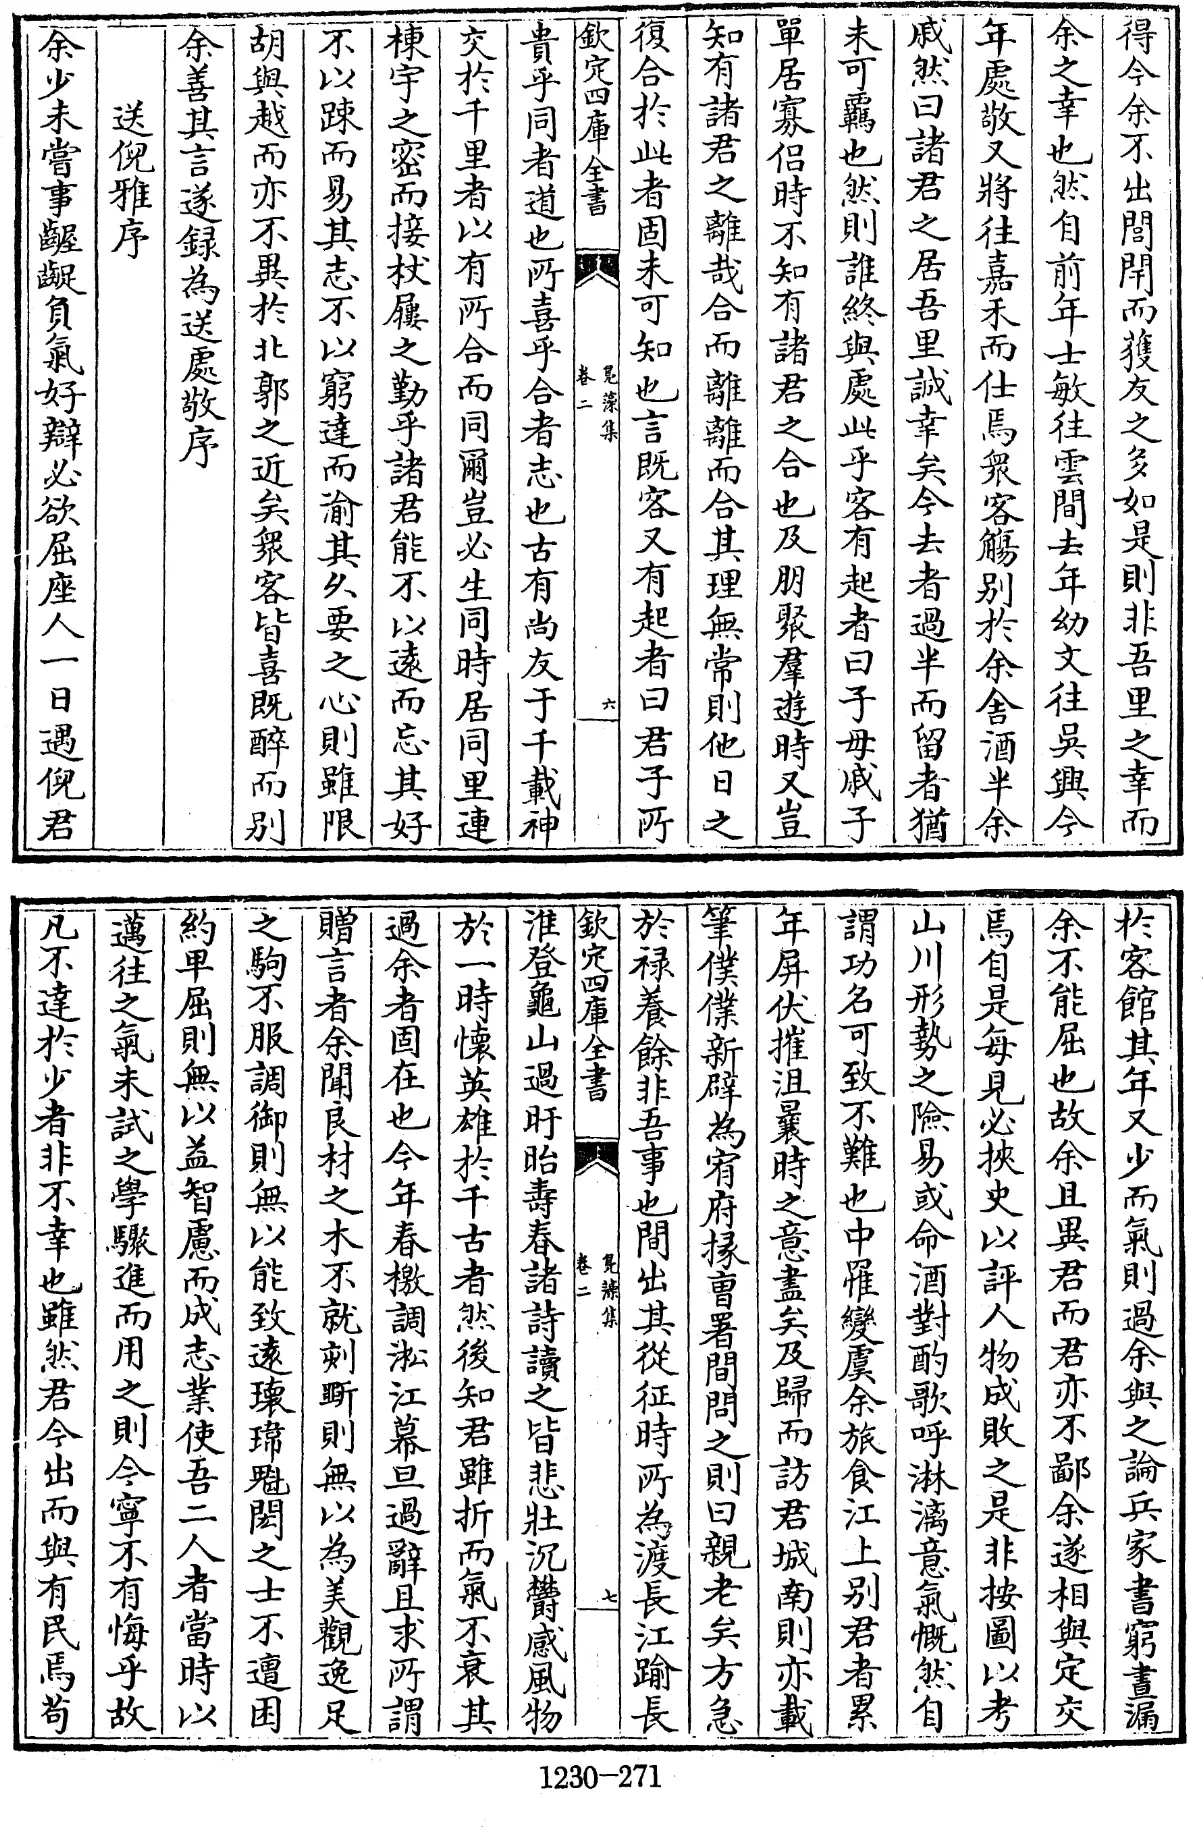 得今余不出閭閈而獲友之多如是則非吾里之幸而
余之幸也然自前年士敏往雲間去年幼文往吳興今
年處敬又將往嘉禾而仕焉衆客觴别於余舎酒半余
戚然曰諸君之居吾里誠幸矣今去者過半而留者猶
未可羈也然則誰終與處此乎客有起者曰子毋戚子
單居寡侣時不知有諸君之合也及朋聚羣遊時又豈
知有諸君之離哉合而離離而合其理無常則他日之
復合於此者固未可知也言既客又有起者曰君子所
欽定四庫全書
鳧藻集
卷二
六
貴乎同者道也所喜乎合者志也古有尚友于千載神
交於千里者以有所合而同爾豈必生同時居同里連
棟宇之密而接杖屨之勤乎諸君能不以遠而忘其好
不以踈而易其志不以窮達而渝其久要之心則雖限
胡與越而亦不異於北郭之近矣衆客皆喜既醉而别
余善其言遂録為送處敬序
送倪雅序
余少未嘗事齷齪負氣好辯必欲屈座人一日遇倪君
於客館其年又少而氣則過余與之論兵家書窮晝漏
余不能屈也故余且異君而君亦不鄙余遂相與定交
焉自是每見必挾史以評人物成敗之是非按圖以考
山川形勢之險易或命酒對酌歌呼淋漓意氣慨然自
謂功名可致不難也中罹變虞余旅食江上别君者累
年屏伏摧沮曩時之意盡矣及歸而訪君城南則亦載
筆僕僕新辟為宥府掾曹署間問之則曰親老矣方急
於禄養餘非吾事也間出其從征時所為渡長江踰長
欽定四庫全書
鳧藻集
卷二
七
淮登龜山過盱眙壽春諸詩讀之皆悲壯沉欝感風物
於一時懷英雄於千古者然後知君雖折而氣不衰其
過余者固在也今年春檄調淞江幕旦過辭且求所謂
贈言者余聞良材之木不就刻斵則無以為美觀逸足
之駒不服調御則無以能致遠瓌瑋魁閎之士不遭困
約卑屈則無以益智慮而成志業使吾二人者當時以
邁往之氣未試之學驟進而用之則今寧不有悔乎故
凡不達於少者非不幸也雖然君今出而與有民焉苟
1230-271